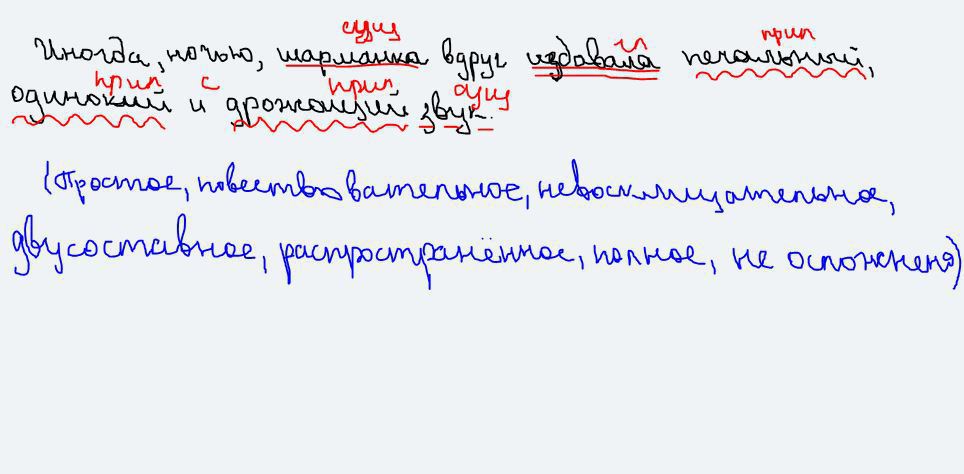 сущ
Иногда, ночью, шарманка вдруг издавала печальный,
гл прил
прил с прил сущ
одинокий и дрожащий звук.
(Простое, повествовательное, невосклицательное,
двусоставное, распространённое, полное, не осложнено)